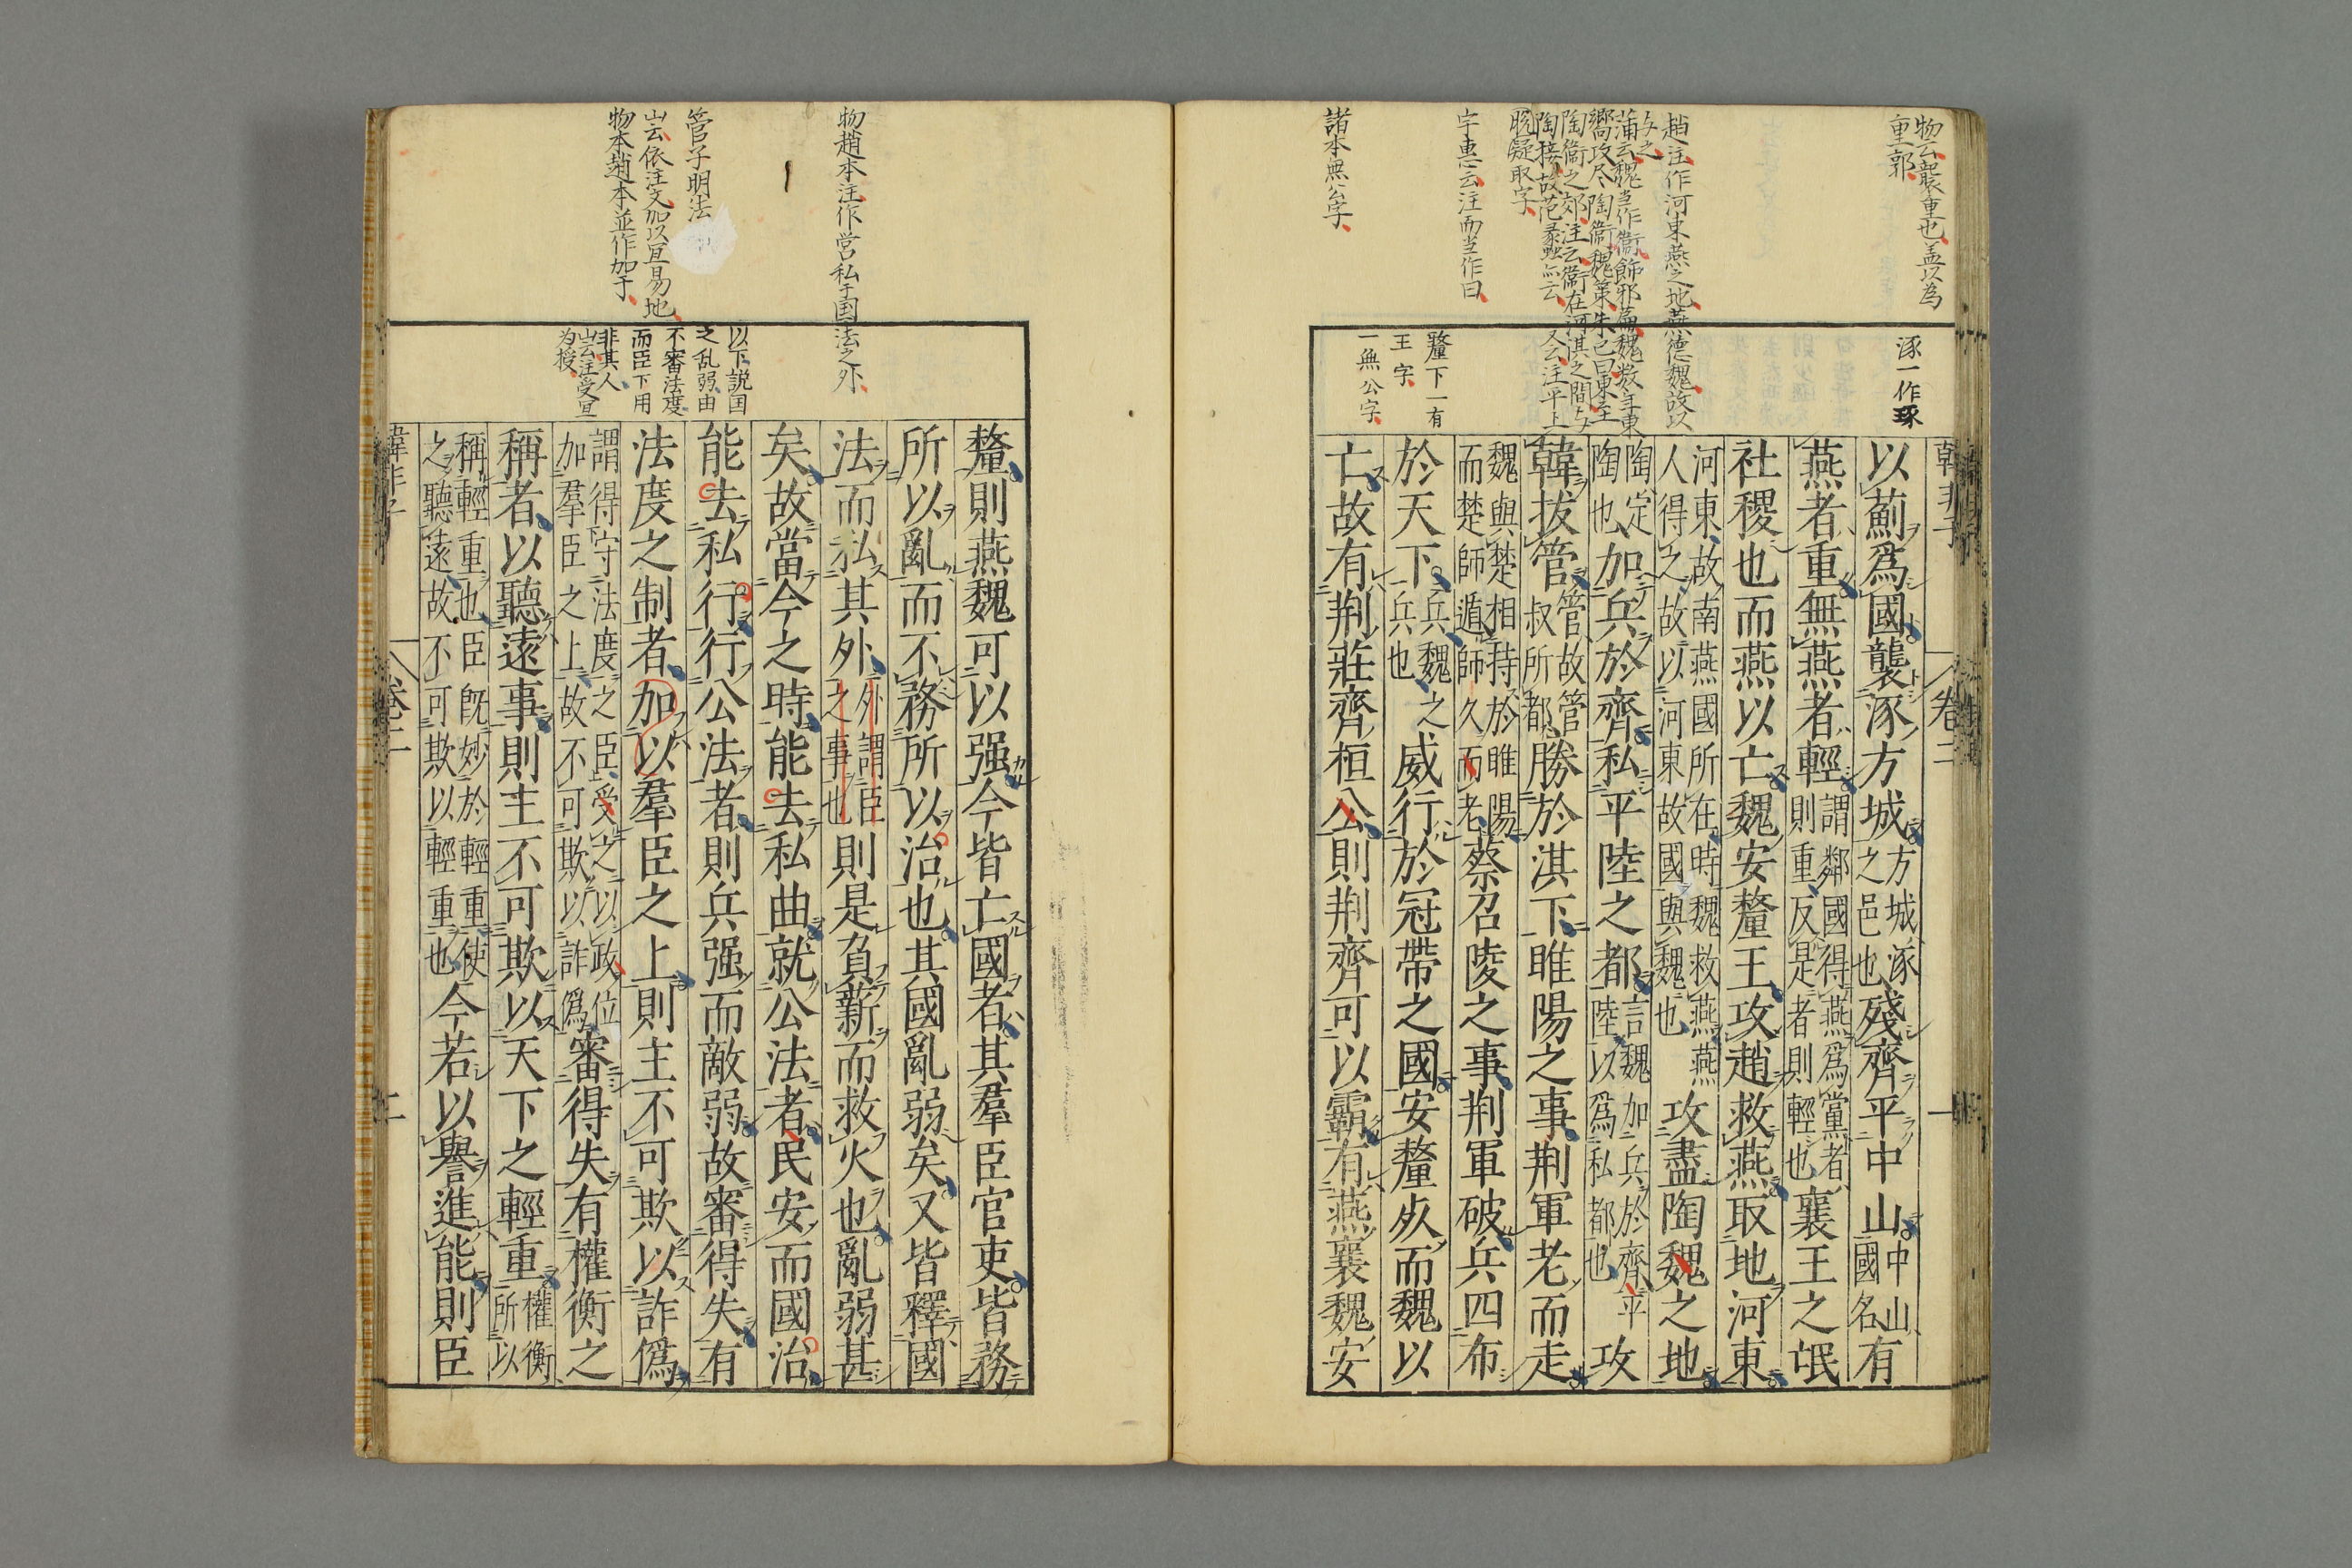 物云襲重也盖以為
重郭
趙注作河東燕之地燕德魏故以
与之
蒲云魏当作衞飾邪篇魏数年東
嚮攻尽陶衞魏策朱己曰東至
陶衞之郊注云衞在河淇之間与
陶接故范蠡云云
脱疑取字
又云注平上
宇惠云注而当作曰
諸本無公字
涿一作琢
釐下一有
王字
一無公字
韓非子 卷二 一
以薊爲國襲涿方城方城涿之邑也殘齊平中山中山國名有
燕者重無燕者輕謂鄰國得燕爲黨者則重反是者則輕也襄王之氓
社稷也而燕以亡魏安釐王攻趙救燕取地河東
河東故南燕國所在時魏救燕燕人得之故以河東故國與魏也攻盡陶魏之地
陶定陶也加兵於齊私平陸之都言魏加兵於齊平陸以爲私都也攻
韓拔管管故管叔所都勝於淇下睢陽之事荆軍老而走
魏與楚相持於睢陽而楚師遁師久而老蔡召陵之事荆軍破兵四布
於天下兵魏之兵也威行於冠帶之國安釐死而魏以
亡故有荆莊齊桓公則荆齊可以霸有燕襄魏安
物趙本注作営私于国法之外
管子明法
山云依注文加以宜易地
物本趙本並作加于
以下説国
之乱弱由
不審法度
而臣下用
非其人
山云注受宜
为授
釐則燕魏可以强今皆亡國者其羣臣官吏皆務
所以亂而不務所以治也其國亂弱矣又皆釋國
法而私其外外謂臣之事也則是負薪而救火也亂弱甚
矣故當今之時能去私曲就公法者民安而國治
能去私行行公法者則兵强而敵弱故審得失有
法度之制者加以羣臣之上則主不可欺以詐僞
謂得守法度之臣受之以政位加羣臣之上故不可欺以詐僞審得失有權衡之
稱者以聽遠事則主不可欺以天下之輕重權衡所以
稱輕重也臣旣妙於輕重使之聽遠故不可欺以輕重也今若以譽進能則臣
韓非子 卷二 二